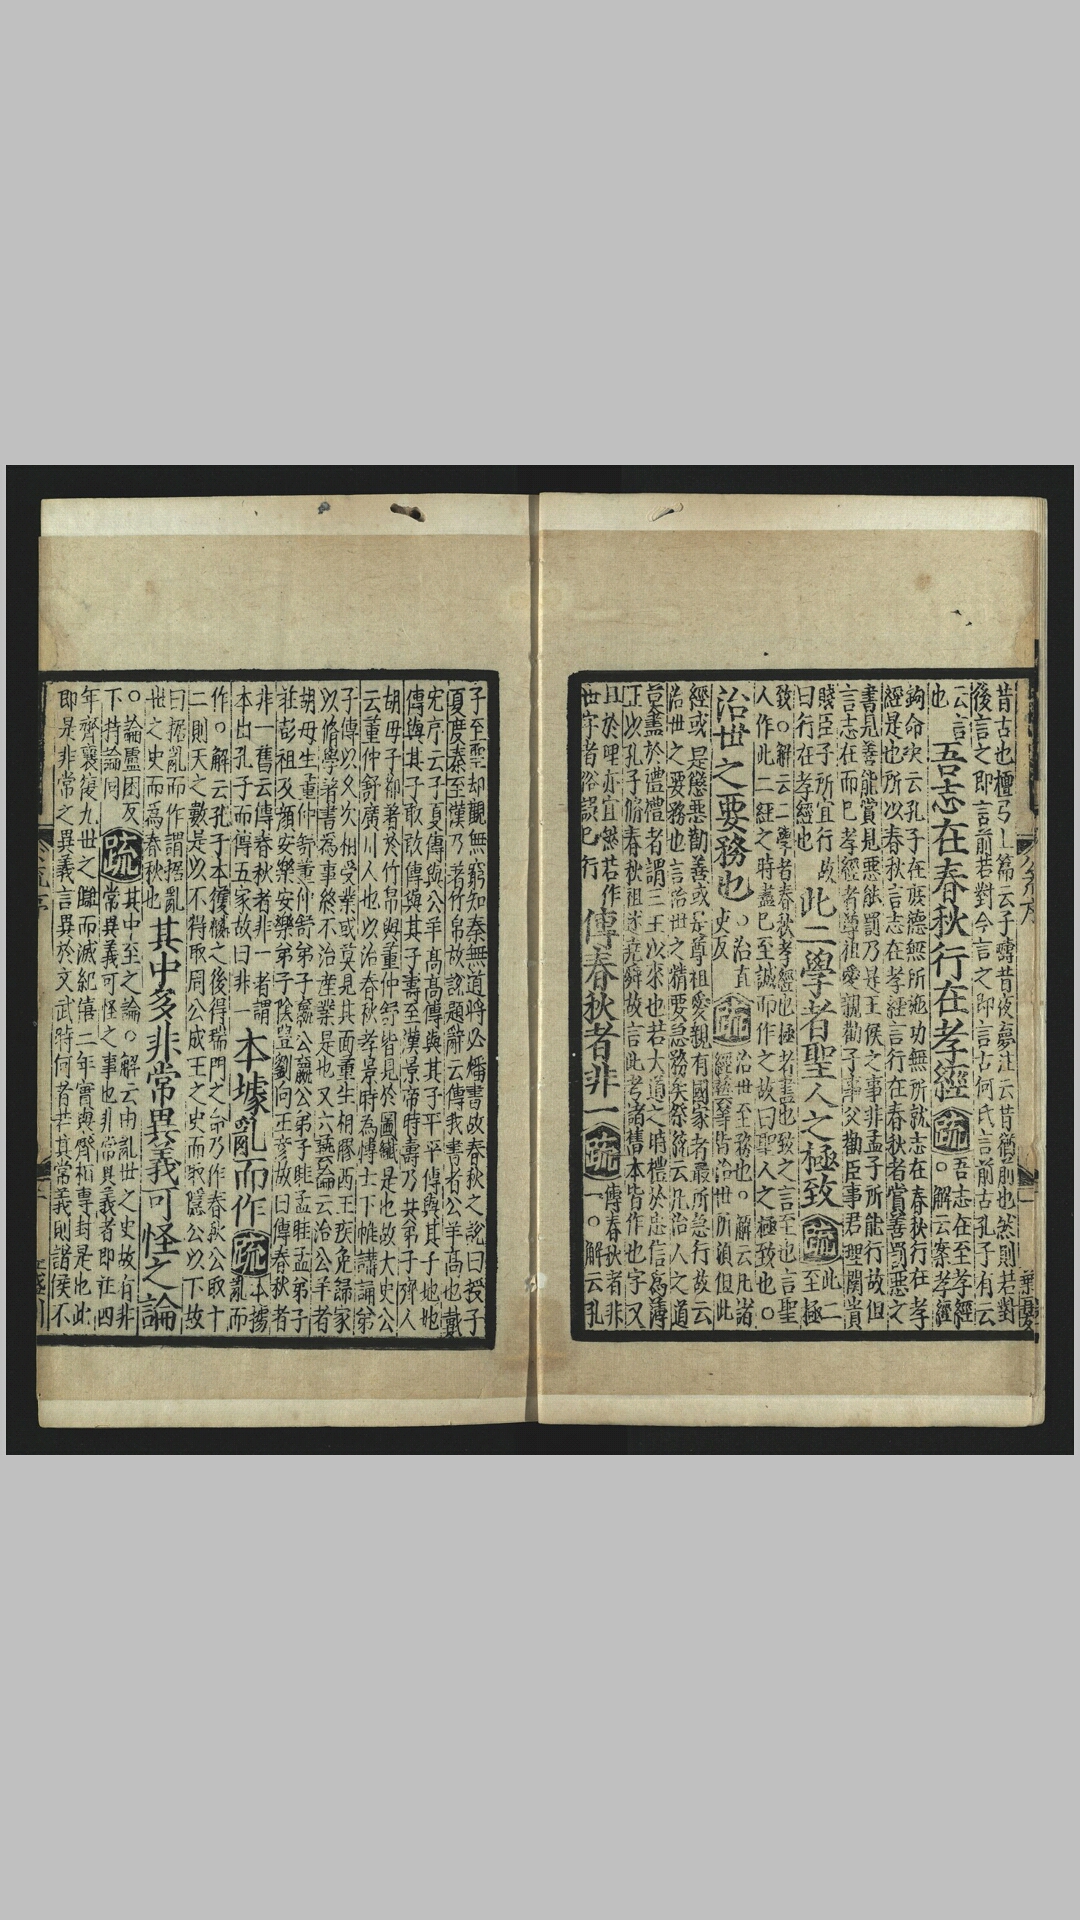 昔古也檀弓上篇云子疇昔夜夢注云昔猶前也然則若對
後言之即言前若對今言之即言古何氏言前古孔子有云
云言
也 吾志在春秋行在孝經 疏 吾志在至孝經
。解云案孝經
鉤命決云孔子在庶德無所施功無所就志在春秋行在孝
經是也所以春秋言志在孝經言行在春秋者賞善罰惡之
書見善能賞見惡能罰乃是王侯之事非孟子所能行故但
言志在而已孝經者尊祖愛親勸子事父勸臣事君理關貴
賤臣子所宜行故
曰行在孝經也 此二學者聖人之極致 疏 此二
至極
致。解云二學者春秋孝經也極者盡也致之言至也言聖
人作此二經之時盡已至誠而作之故曰聖人之極致也。
治世之要務也 。治直
吏反 疏 治世至務也。解云凡諸
經藝等皆治世所須但此
經或是懲惡勸善或是尊祖愛親有國家者最所急行故云
治世之要務也言治世之精要急務矣祭統云凡治人之道
莫盡於禮禮者謂三王以來也若大道之時禮於忠信為薄
正以孔子脩春秋祖述堯舜故言此考諸舊本皆作也字又
且於理亦宜然若作
世字者俗誤已行 傳春秋者非一 疏 傳春秋者非
一。解云孔
子至聖却觀無窮知秦無道將必燔書故春秋之說曰授子
夏度秦至漢乃著竹帛故說題辭云傳我書者公羊高也戴
宏序云子夏傳與公羊高高傳與其子平平傳與其子地地
傳與其子敢敢傳與其子壽至漢景帝時壽乃共弟子齊人
胡毋子都著於竹帛與董仲舒皆見於圖讖是也故大史公
云董仲舒廣川人也以治春秋孝景時為博士下帷講誦弟
子傳以久次相受業或莫見其面董生相膠西王疾免歸家
以脩學著書為事終不治產業是也又六藝論云治公羊者
胡毋生董仲舒董仲舒弟子嬴公嬴公弟子眭孟眭孟弟子
莊彭祖及顏安樂安樂弟子陰豐劉向王彥故曰傳春秋者
非一舊云傳春秋者非一者謂
本出孔子而得五家故曰非一 本據亂而作 疏 本據
亂而
作。解云孔子本獲麟之後得瑞門之命乃作春秋公取十
二則天之數是以不得取周公成王之史而取隱公以下故
曰據亂而作謂據亂
世之史而為春秋也 其中多非常異義可怪之論
。論盧困反
下持論同 疏 其中至之論。解云由亂世之史故有非
常異義可怪之事也非常異義者即莊四
年齊襄復九世之讎而滅紀僖二年實與齊桓專封是也此
即是非常之異義言異於文武時何者若其常義則諸侯不